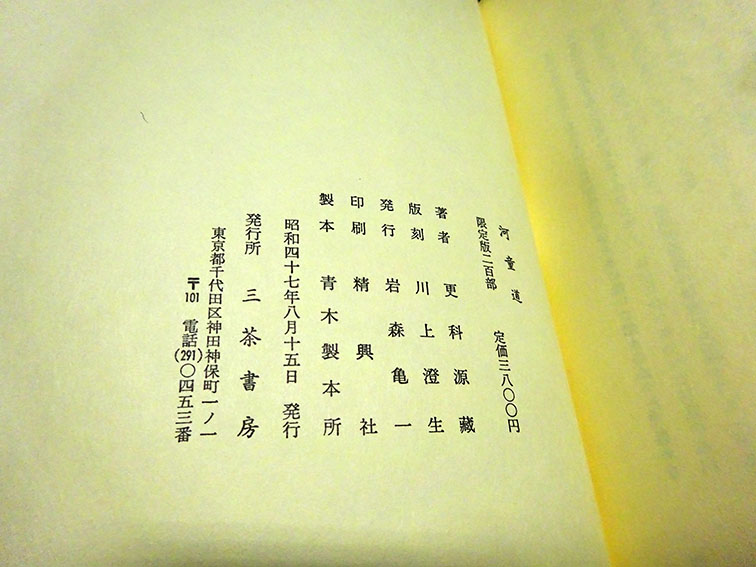 河童道
限定版二百部　定価三八〇〇円
著者　更科源藏
版刻　川上澄生
発行　岩森亀一
印刷　精興社
製本　青木製本所
昭和四十七年八月十五日　発行
発行所　三茶書房
東京都千代田区神田神保町一ノ一
〒101　電話(291)〇四五三番